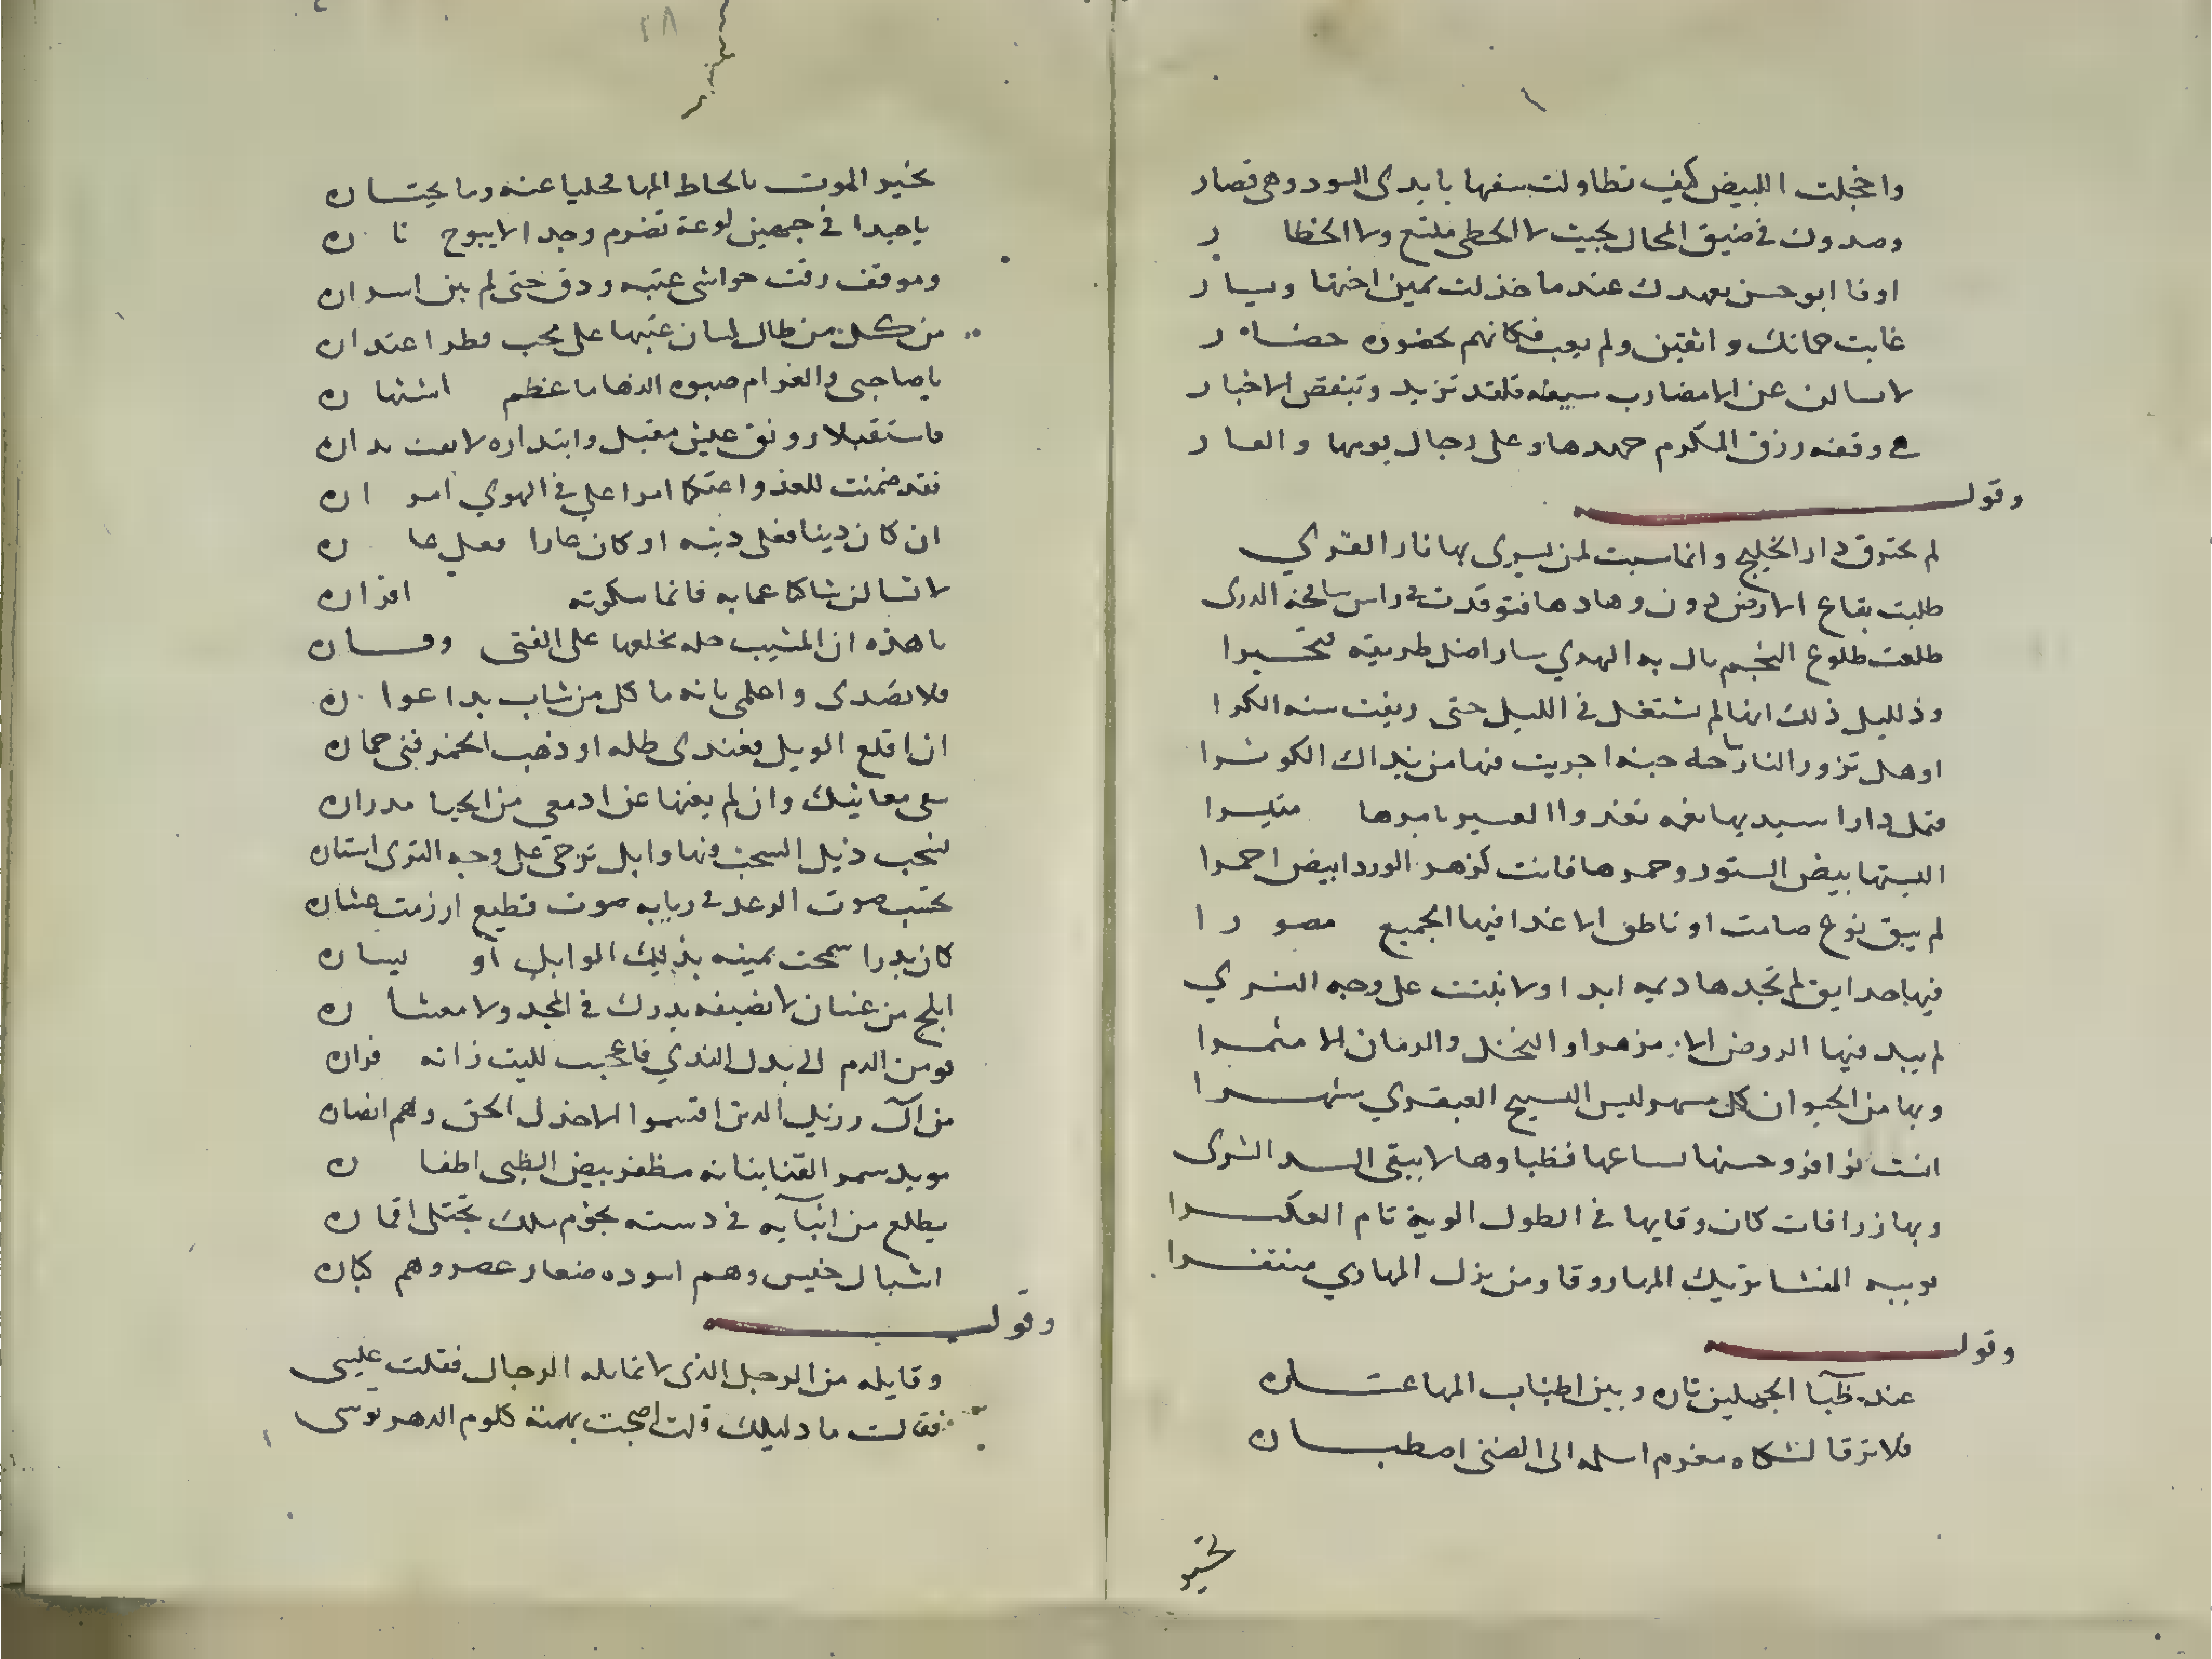 واخجلت البيض كيف تطاولت سفها بايدى السود وهى قصار
وصدوك فى ضيق المحال بحيث لا الخطى متسع ولا الخطا ر
اوفا ابو حسن بعهدك عندما خذلت يمين اختها ويسار
غابت حماتك واثقين ولم يعب فكانهم بحضوره حضار
لا تسالن عن الامضارب سيفه فلقد تزيد وتنقص الاخبار
فى وقفه رزق المكرم حمدها وعلى رجال يومها والعار
وقولـه
لم تحترق دار الخليج وانما سبت لمن يسرى بها نار القري
طلبت بقاع الارض دون وهادها فتوقدت فى راس شامخة الدرى
طلعت طلوع النجم بال به الهدي سار اضل طريقه فتحيرا
وذ لليل ذلك انها لم تشتعل فى الليل حتى ريفت سنه الكرا
او هل تزور النار ساحه جنه اجريت فيها من نداك الكوثرا
فتمل دارا سيديها نعمه تغدوا العسير بامرها متيسرا
البستها بيض الستور وحمرها فاتت كزهر الورد ابيض احمرا
لم يبق نوع صامت او ناطق الا غدا فيها الجميع مصو را
فيها حدايق لم تجدها ديمه ابدا ولا نبتت على وجه الثري
لم يبد فيها الروض الا مزهرا والنخل والرمان الا مثمرا
وبها من الحيوان كل مسهر لبس النسيج العبقري مشهرا
انست نوافر وحسنها لساعها فظباوها لا يتقى اسد الشرى
وبها زرافات كان رقابها فى الطول الوية تام العكرا
نوبيه المنشا تريك المها روقا ومن بزل المهاري منفقرا
وقولـه
عند ظبآ الجهلين تاره وبين اطناب المها عتاره
فلا ترقا لشكاه مغرم اسلمه الى الضنى اصطباره
تخير
تخير الموت بالحاط المها فخليا عنه وما يختاره
يا حبدا فى جمعين لوعة تضرم وجدا لا يبوح نا ره
وموقف رقت حواشى عتبه ودق حتى لم يبن اسراره
من كل من طال لسان عتبها على محب قطر اعتداره
يا صاحبى والغرام صبوه الدها ما عظم اشتها ره
فاستقبلا رونق عيش مقبل وابتداره لا يفت بداره
فقد ضمنت للعذر واعتكا امرا على فى الهوي امر اره
ان كان دينا فعلى دينه او كان عارا فعلى عا ره
لا تسالن شاكا عما به فانما سكوته اقراره
يا هذه ان المشيب حله يخلعها على الفتى وقـاره
فلا تصدى واعلمى بانه ما كل من شاب بدا عوا ره
ان اقلع الوبل فعندى طله او ذهب الخمر فبى خماره
سقى معانيك وان لم يغنها عن ادمعى من الحيا مدراره
لسحب ذيل السحب فيها وابل ترخى على وجه الثرى استاره
تحسب صوت الرعد فى ربابه صوت قطيع ارزمت عشاره
كان بدرا سمحت يمينه بذلك الوابل او يساره
ابلج من غسان لا نصيفه يدرك فى المجد ولا معشا ره
فو من الدم الى بدل الندي فاعجب لليث زانه فراره
من آل رزيك الدين اقسموا لا خذل الحق وهم انصاره
مويد سمر القنا بنانه مظفر بيض الظبى اطفا ره
يطلع من انبآيه فى دسته نجوم ملك تجتلى اقماره
اشبال خيس وهم اسوده صغار عصر وهم كباره
وقولـه
وقايله من الرجل الذى لا تقابله الرجال فقلت عيسى
فقالت ما دليلك قلت اضحت بهمته كلوم الدهر توسى